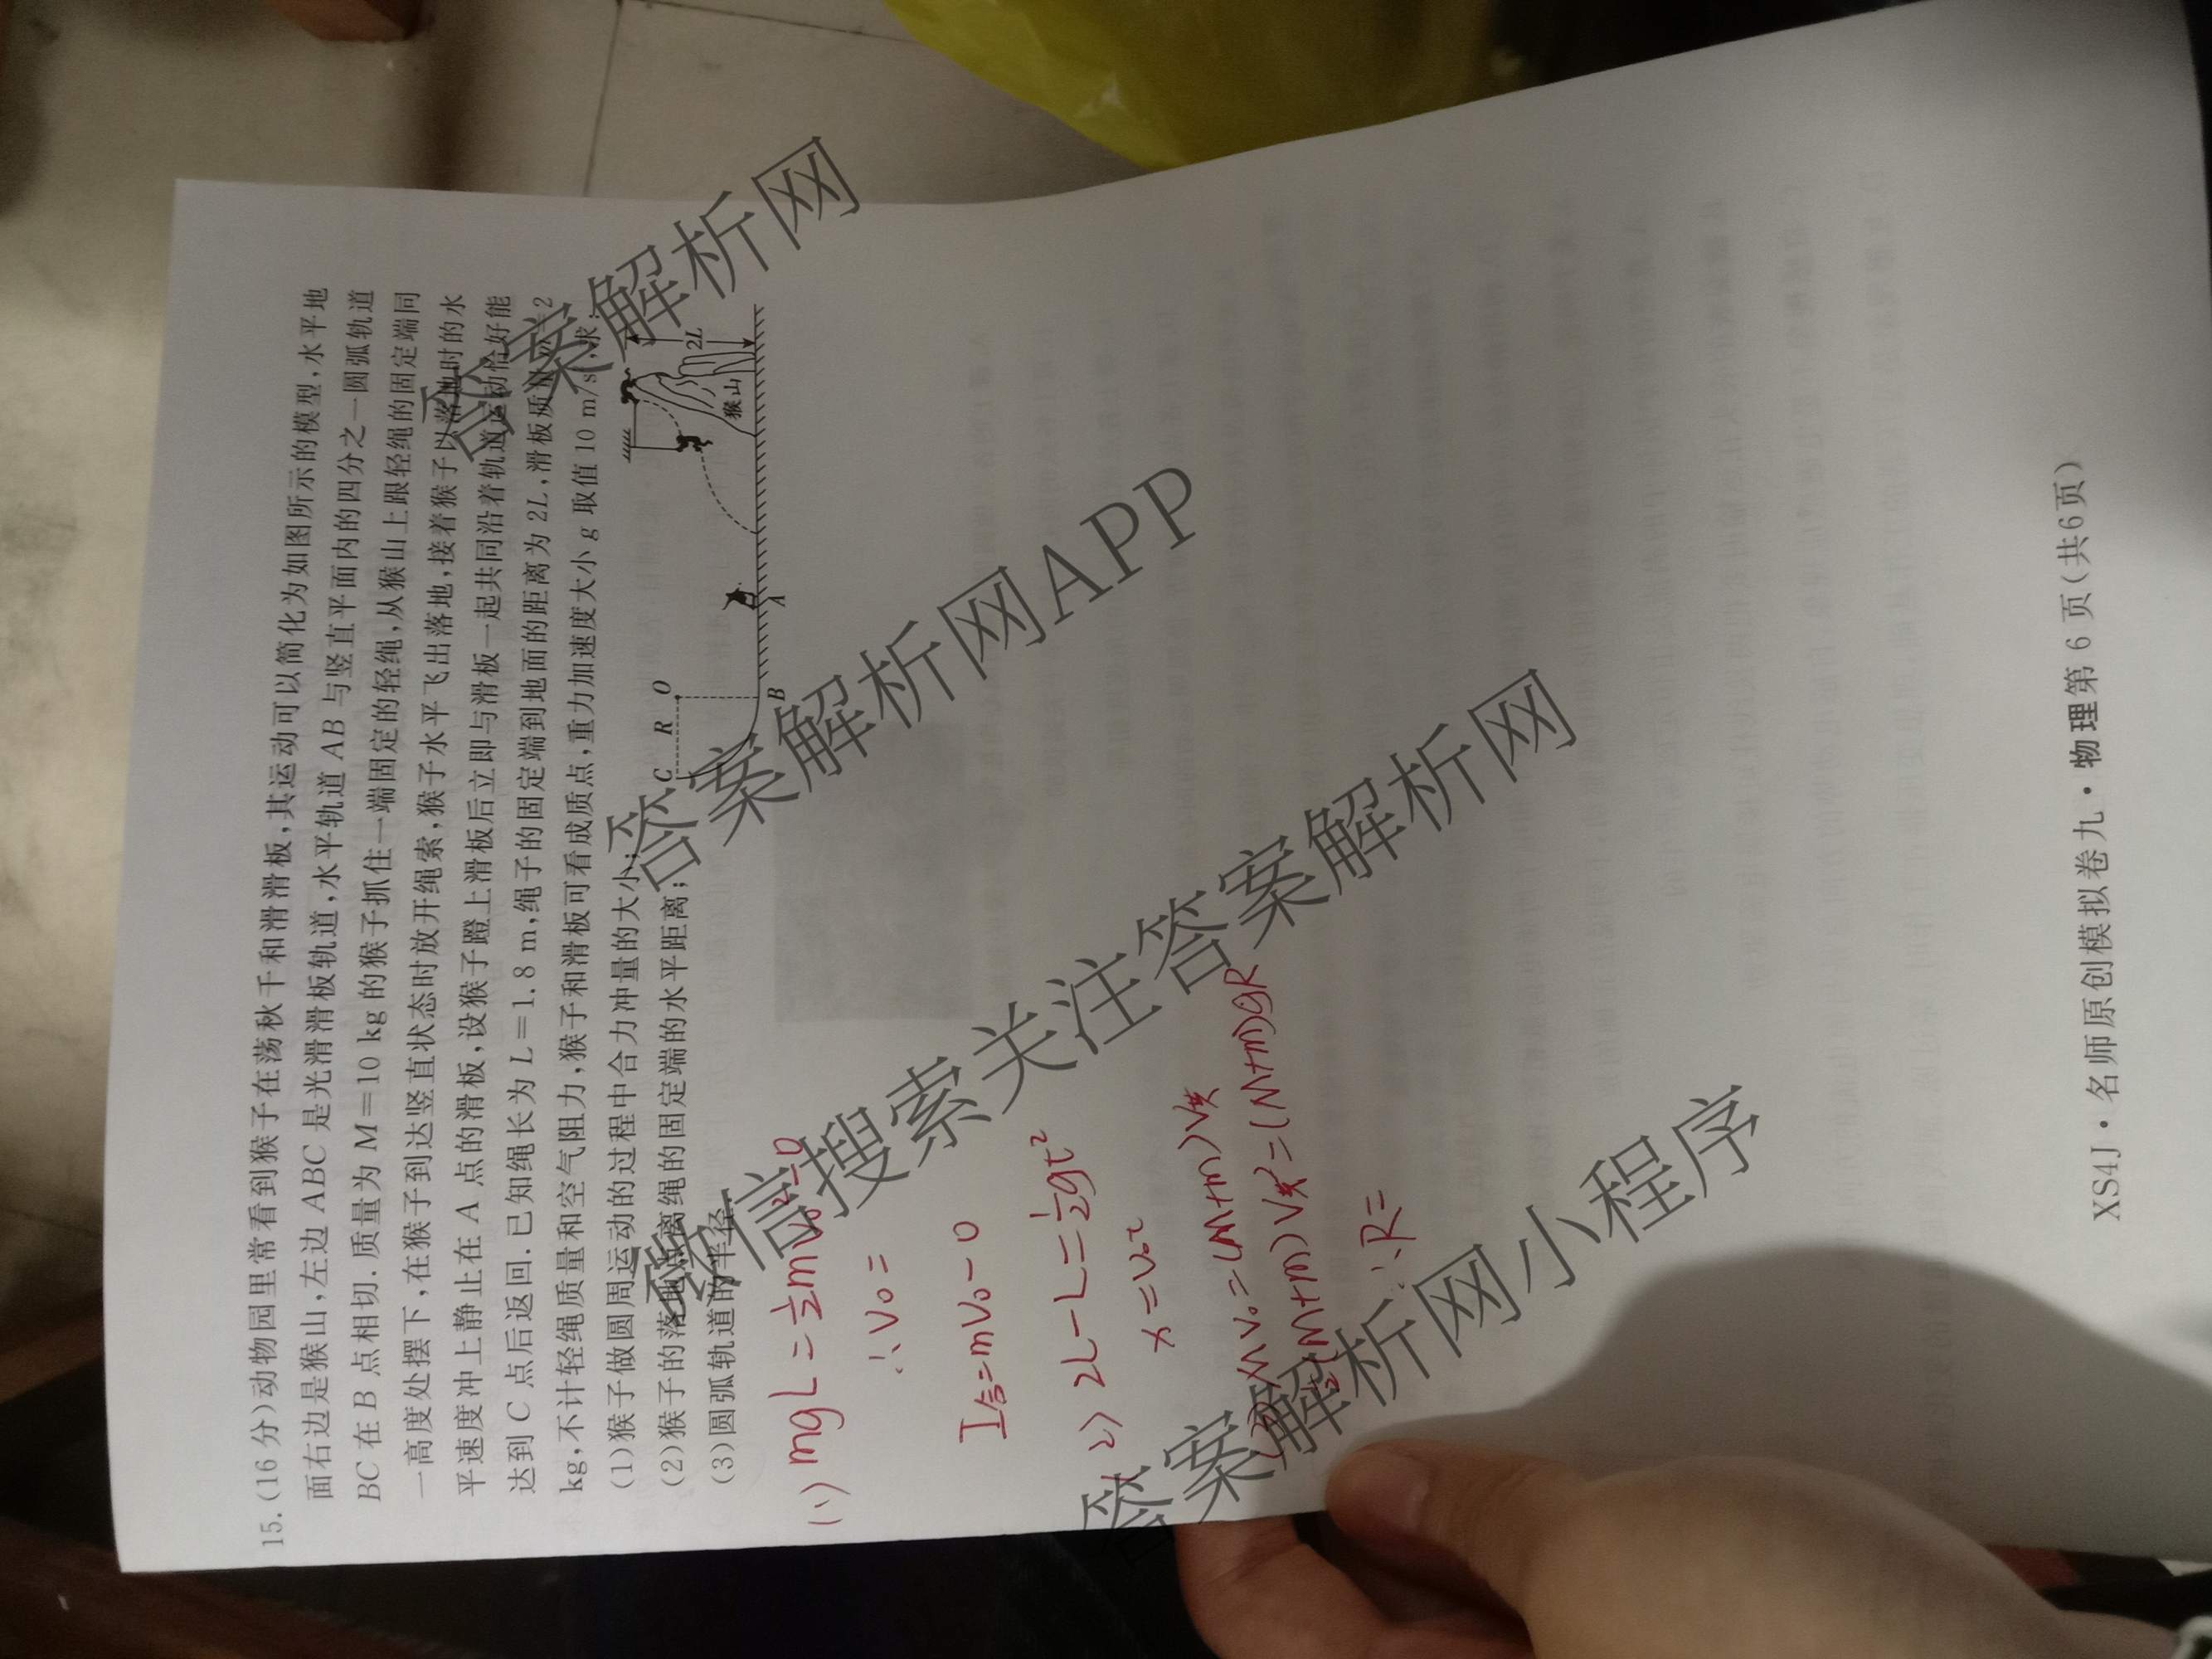 15.(16分)动物园里常看到猴子在荡秋千和滑滑板,其运动可以简化为如图所示的模型,水平地
面右边是猴山,左边ABC是光滑滑板轨道,水平轨道AB与竖直平面内的四分之一圆弧轨道
BC在B点相切.质量为M=10 kg的猴子抓住一端固定的轻绳,从猴山上跟轻绳的固定端同
一高度处摆下,在猴子到达竖直状态时放开绳索,猴子水平飞出落地,接着猴子以落地时的水
平速度冲上静止在A点的滑板,设猴子蹬上滑板后立即与滑板一起共同沿着轨道运动恰好能
达到C点后返回.已知绳长为L=1.8 m,绳子的固定端到地面的距离为2L,滑板质量m=2
kg,不计轻绳质量和空气阻力,猴子和滑板可看成质点,重力加速度大小g取值10 m/s²,求:
(1)猴子做圆周运动的过程中合力冲量的大小;
(2)猴子的落地点离绳的固定端的水平距离;
(3)圆弧轨道的半径.
C R O
B
A
猴山
2L
(1) mgL=½mv₀²-0
∴v₀=
I合=mv₀-0
2) 2L-L=½gt²
x=v₀t
(3) Mv₀=(M+m)v共
½(M+m)v共²=(M+m)gR
∴R=
XS4J·名师原创模拟卷九·物理第6页(共6页)
答案解析网
答案解析网APP
微信搜索关注答案解析网
答案解析网小程序